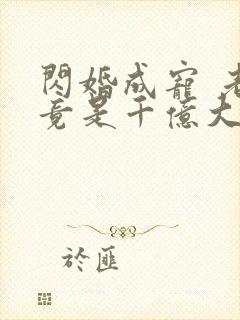 閃婚成寵 老
竟是千億大
於匪